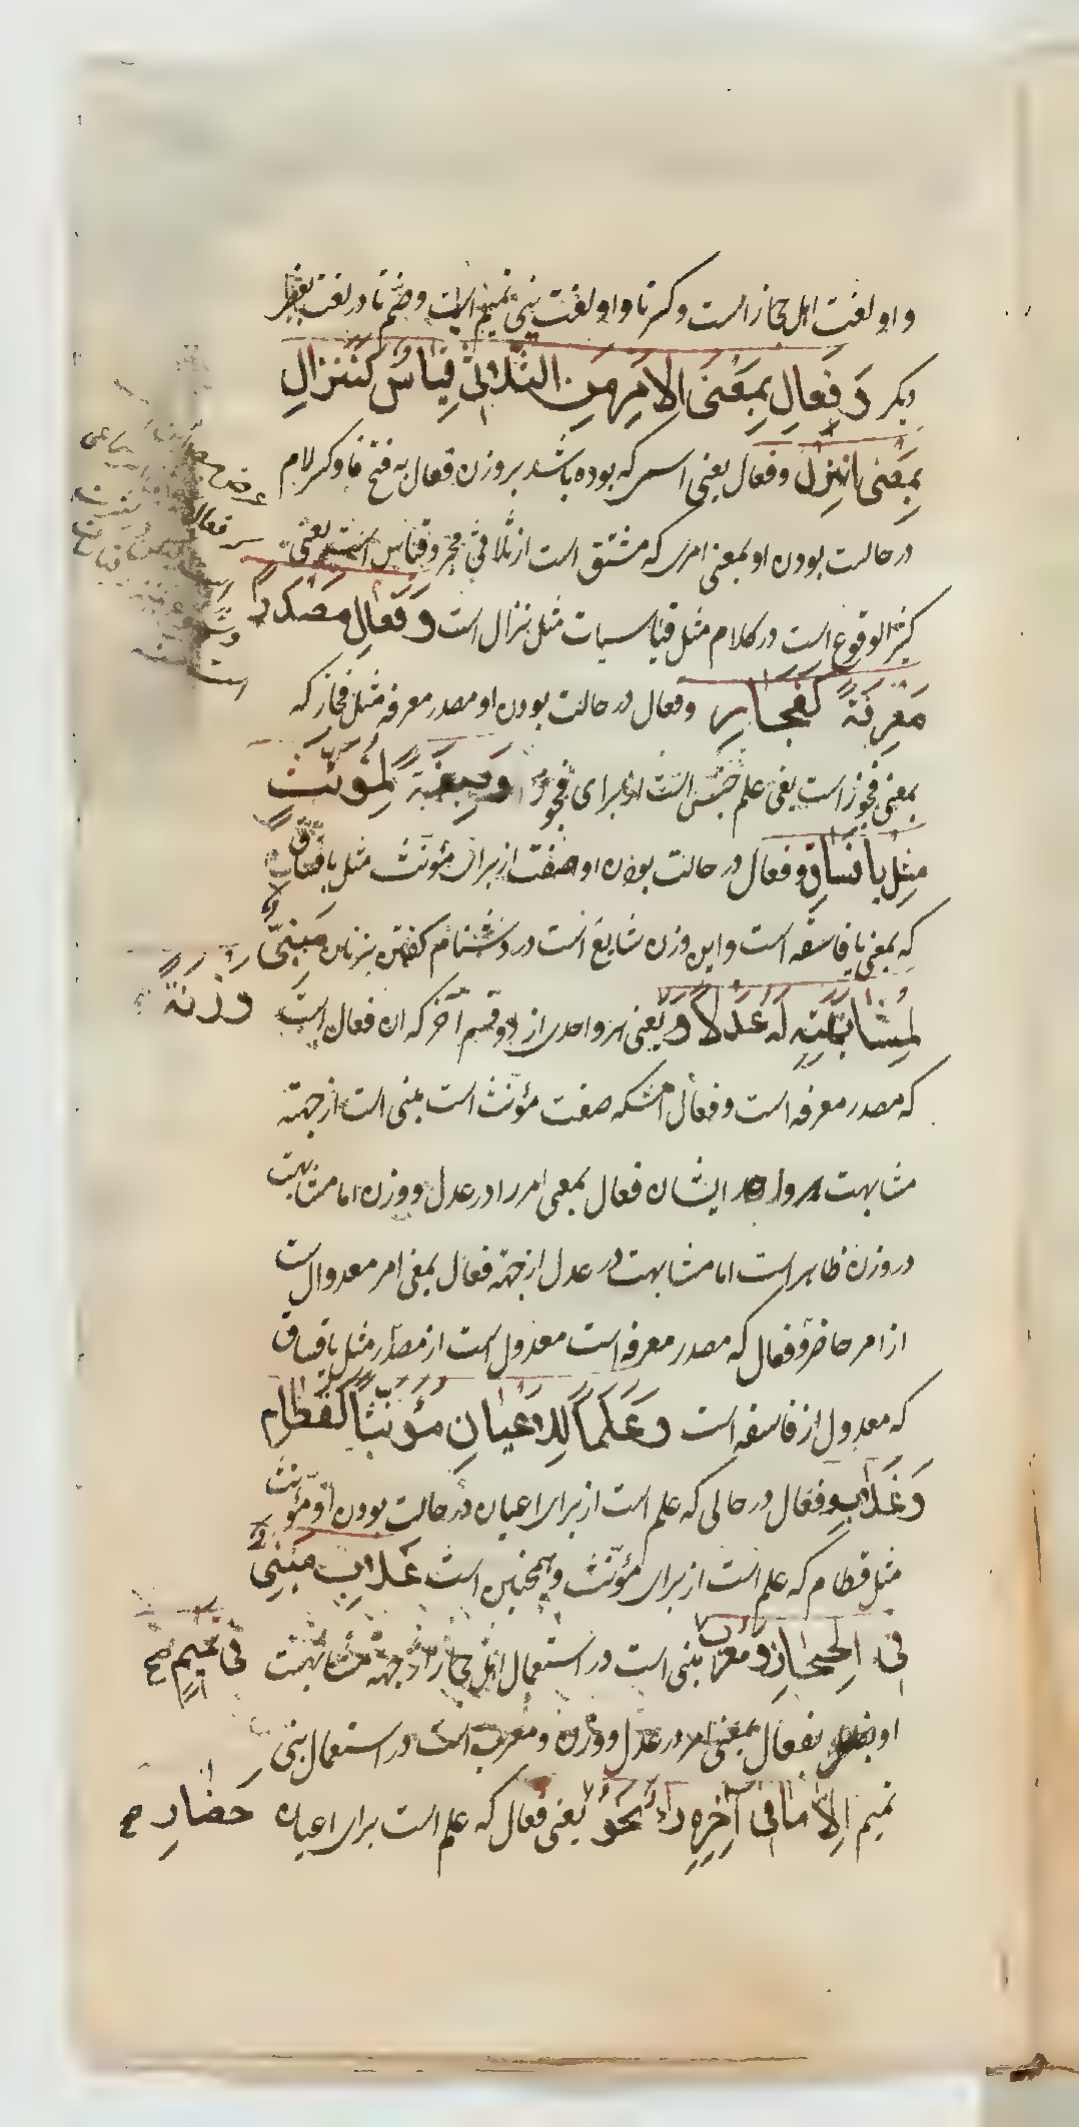 واو لغت اهل حجاز است وکسر تا واو لغت بنی تمیم است وضم تا در لغت بعض
دیگر وَفَعالِ بِمَعْنَی الاَمْرِ مِنَ الثُّلاثِیِّ قِیاسٌ کَنَزالِ
بِمَعْنی اِنْزِلْ وفعال یعنی اسمی که بوده باشد بر وزن فعال به فتح فا وکسر لام
در حالت بودن او بمعنی امری که مشتق است از ثلاثی مجرد قیاس است یعنی
کثیر الوقوع است در کلام مثل قیاسیات مثل نزال است وَفَعالِ مَصْدَراً
مَعْرِفَةً کَفَجارِ وفعال در حالت بودن او مصدر معرفه مثل فجار که
بمعنی فجور است یعنی علم جنس است از برای فجور وَصِفَةً لِمُؤَنَّثٍ
مِثْلُ یا فَساقِ وفعال در حالت بودن او صفت از برای مؤنث مثل یا فساق
که بمعنی یا فاسقه است واین وزن شایع است در دشنام گفتن بزنان مَبْنِیٌّ
لِمُشابَهَتِهِ لَهُ عَدْلاً وَ یعنی هر واحدی از دو قسم آخر که ان فعال است وَزِنَةً
که مصدر معرفه است وفعال که صفت مؤنث است مبنی است از جهته
مشابهت هر واحد ایشان فعال بمعنی امر را در عدل ووزن اما مشابهت
در وزن ظاهر است اما مشابهت در عدل از جهة فعال بمعنی امر معدول است
از امر حاضر وفعال که مصدر معرفه است معدول است از مصدر مثل یا فساق
که معدول از فاسقه است وَعَلَماً لِلاَعْیانِ مُؤَنَّثاً کَقَطامِ
وَغَلابِ وفعال در حالی که علم است از برای اعیان در حالت بودن او مؤنث
مثل قطام که علم است از برای مؤنث وهمچنین است غَلابِ مَبْنِیٌّ
فی الحِجازِ وَمُعْرَبٌ مبنی است در استعمال اهل حجاز از جهة مشابهت فی تَمیمٍ صح
او بفعال بمعنی امر در عدل ووزن ومعرب است در استعمال بنی
تمیم اِلاّ ما فی آخِرِهِ راءٌ نَحْوُ یعنی فعال که علم است برای اعیان حَضارِ صح